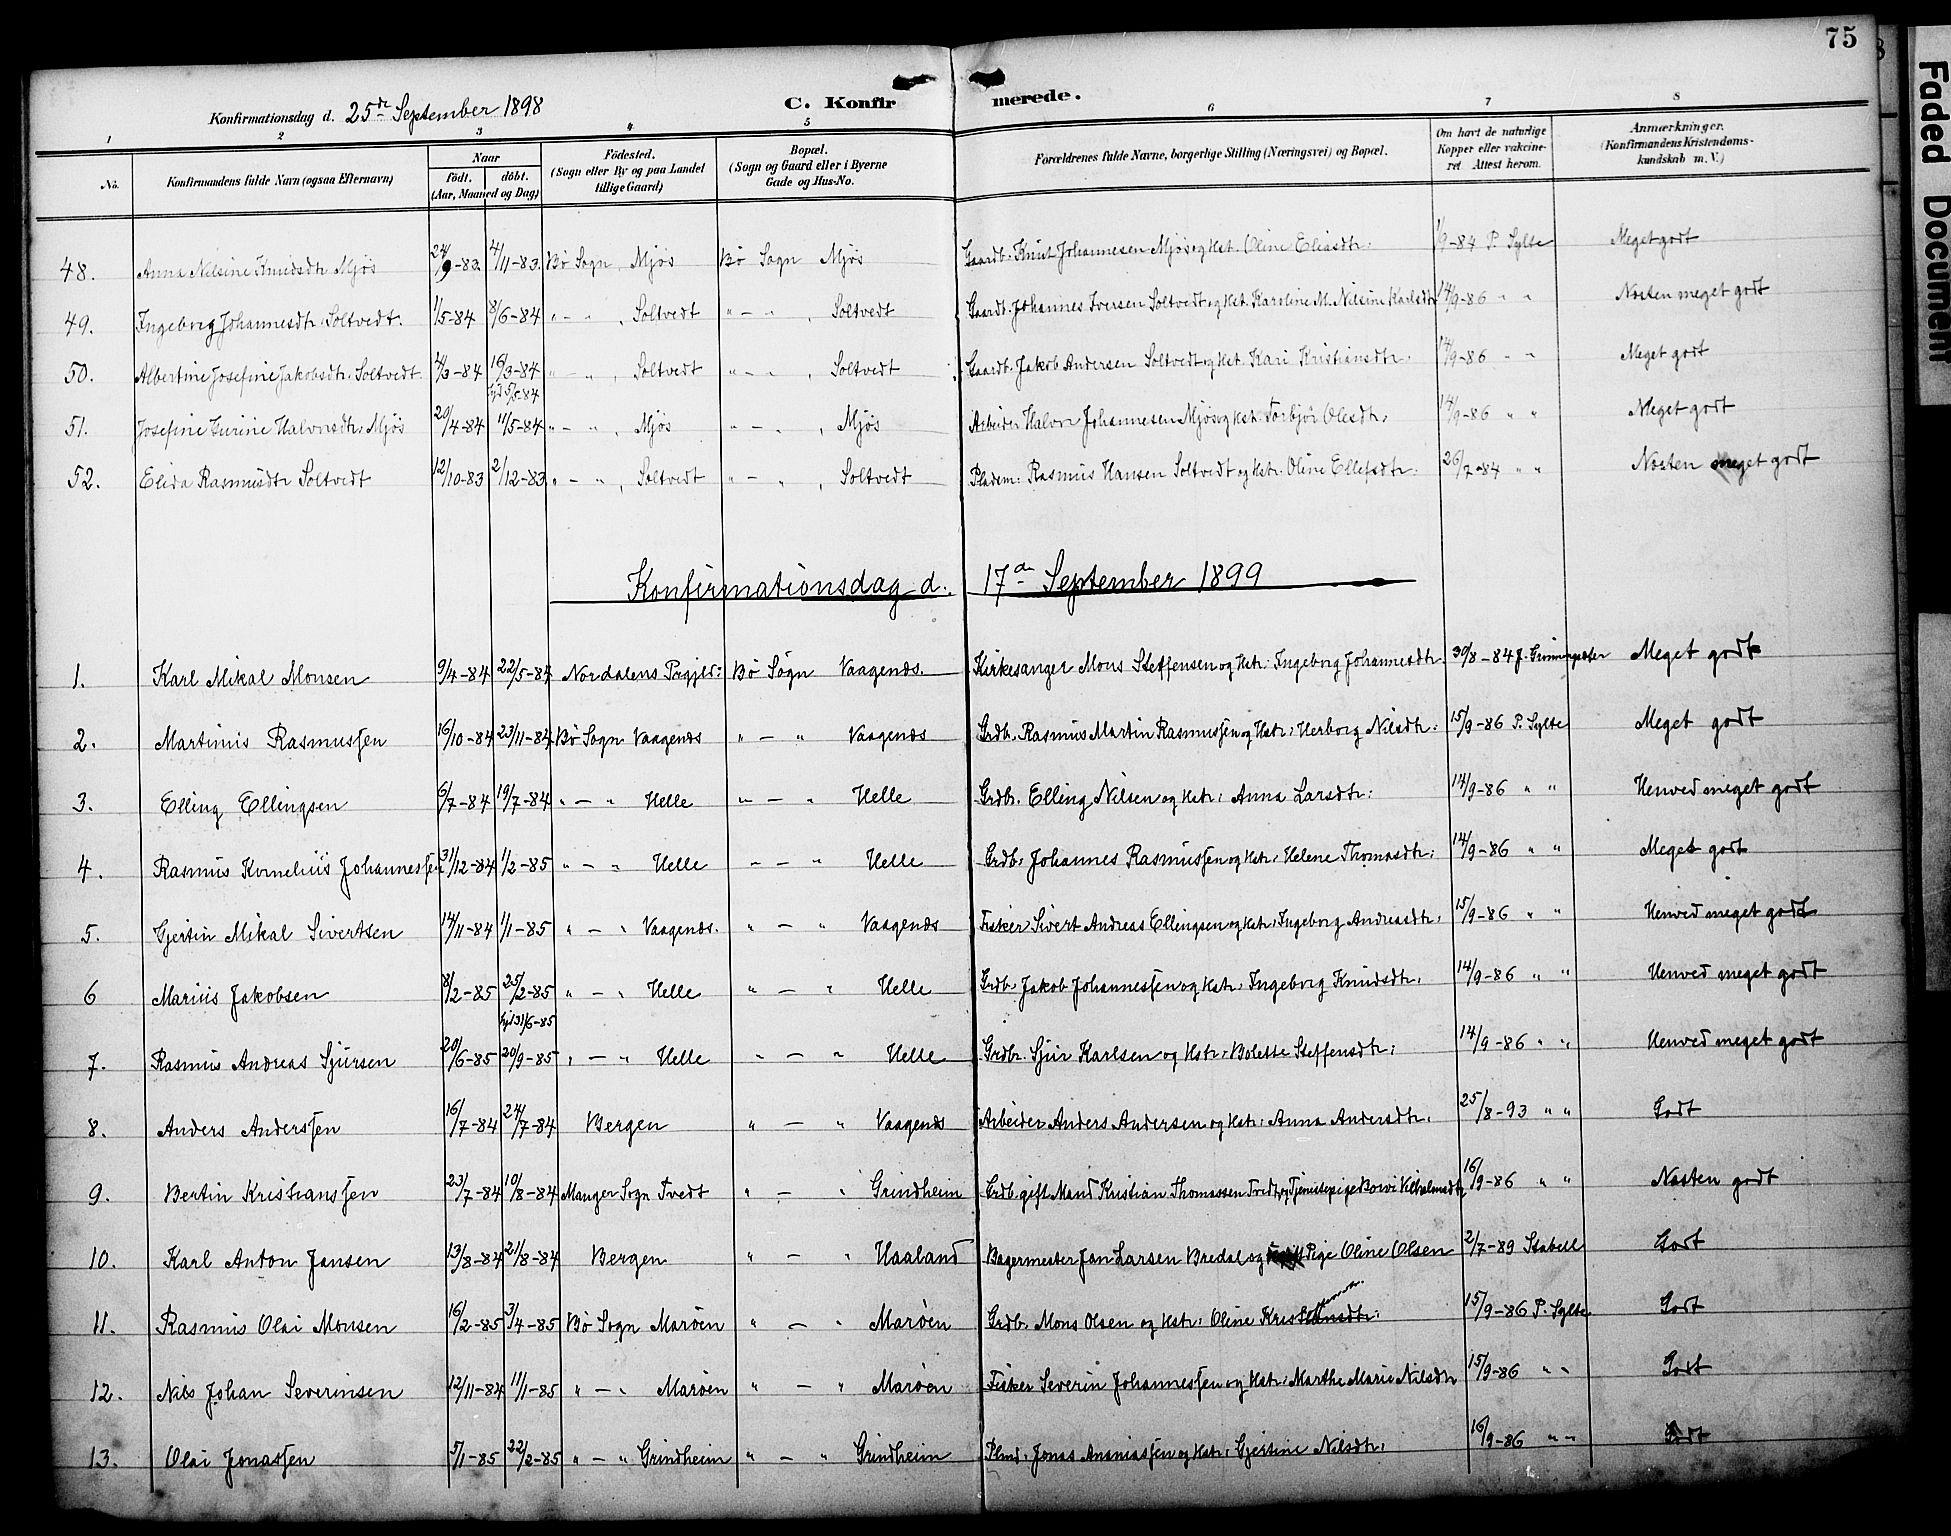 75
Konfirmationsdag d. 25de September 1898
C. Konfirmerede.
1 2 3 4 5 6 7 8
No. Konfirmandens fulde Navn (ogsaa Efternavn) Naar født. døbt. (Aar, Maaned og Dag) Fødested. (Sogn eller By og paa Landet tillige Gaard) Bopæl. (Sogn og Gaard eller i Byerne Gade og Hus-No. Forældrenes fulde Navne, borgerlige Stilling (Næringsvei) og Bopæl. Om havt de naturlige Kopper eller vakcineret Attest herom. Anmærkninger. (Konfirmandens Kristendomskundskab m. V.)
48. Anna Nilsine Knudsdtr Mjøs 24/9-83. 4/11-83. Bø Sogn, Mjøs Bø Sogn Mjøs Gaardb. Knut Johannesen Mjøs og Hst. Oline Eliasdtr. 1/9-84 P. Sylte Meget godt
49. Ingeborg Johannesdtr. Soltvedt. 1/5-84 8/6-84 " - " , Soltvedt " - " , Soltvedt Gaardb. Johannes Iversen Soltvedt og Hst. Karoline M. Nilsine Karlsdtr 14/9-86 " " Næsten meget godt
50. Albertine Josefine Jakobsdtr. Soltvedt 4/3-84 16/3-84 " - " , Soltvedt " - " , Soltvedt Gaardb. Jakob Andersen Soltvedt og Hst. Kari Kristiansdtr. 14/9-86 " " Meget godt
51. Josefine Lurine Halvorsdtr. Mjøs 20/4-84 11/5-84 " - " , Mjøs " - " , Mjøs Arbeider Halvor Johannesen Mjøs og Hst. Torbjør Olesdtr. 14/9-86 " " Meget godt
52. Elida Rasmusdtr Soltvedt 12/10-83 2/12-83 " - " , Soltvedt " - " , Soltvedt Pladsm: Rasmus Hansen Soltvedt og Hstr. Oline Ellefsdtr. 26/7-84 " " Næsten meget godt
Konfirmationsdag d. 17de September 1899
1. Karl Mikal Monsen 9/4-84 22/5-84 Nordalens Prgjld: Bø Sogn Vaagenæs. Kirkesanger Mons Steffensen og Hstr. Ingeborg Johannesdtr. 30/8-84 J. Meget godt
2. Martinus Rasmussen 16/10-84 23/11-84 Bø Sogn Vaagenæs " - " Vaagenæs Grdb. Rasmus Martin Rasmussen og Hstr. Herborg Nilsdtr. 15/9-86 P. Sylte Meget godt
3. Elling Ellingsen 6/7-84 19/7-84 " - " Helle " - " Helle Grdb. Elling Nilsen og Hstr. Anna Larsdtr. 14/9-86 " " Henved meget godt
4. Rasmus Kornelius Johannessen 31/12-84 1/2-85 " - " Helle " - " Helle Grdb. Johannes Rasmussen og Hstr. Helene Thomasdtr. 14/9-86 " " Meget godt
5. Gjertin Mikal Sivertsen 14/11-84 1/1-85 " - " Vaagenæs. " - " Vaagenæs Fisker Sivert Andreas Ellingsen og Hstr. Ingeborg Andreasdtr. 15/9-86 " " Henved meget godt
6 Marius Jakobsen 8/2-85 25/2-85 " - " Helle " - " Helle Grdb. Jakob Johannessen og Hstr. Ingeborg Knudsdtr. 14/9-86 " " Henved meget godt
7. Rasmus Andreas Sjursen 20/6-85 20/9-85 " - " Helle " - " Helle Grdbr. Sjur Karlsen og Hstr. Bolette Steffensdtr. 14/9-86 " " Henved meget godt
8. Anders Anderssen 16/7-84 24/7-84 Bergen " - " Vaagenæs Arbeider Anders Andersen og Hstr. Anna Andersdtr. 25/8-93 " " Godt
9. Bertin Kristianssen 23/7-84 10/8-84 Manger Sogn Tvedt " - " Grindheim Grdb. gift Mand Kristian Thomassen Tvedt og Tjenestepige 16/9-86 " " Næsten godt
10. Karl Anton Jansen 13/8-84 21/8-84 Bergen " - " Haaland Bagermester Jan Larsen Bredal og Pige Oline Olsen 2/7-89 Stabell Godt
11. Rasmus Olai Monsen 16/2-85 3/4-85 Bø Sogn Marøen " - " Marøen Grdb. Mons Olsen og Hstr. Oline 15/9-86 P. Sylte Godt
12. Nils Johan Severinsen 12/11-84 1/1-85 " - " Marøen " - " Marøen Fisker Severin Johannessen og Hstr. Marthe Marie Nilsdtr 15/9-86 " " Godt
13. Olai Jonassen 5/1-85 22/2-85 " - " Grindheim " - " Grindheim Plmd. Jonas Ananiassen og Hstr. Gjertine Nilsdtr. 16/9-86 " " Godt
Faded Document